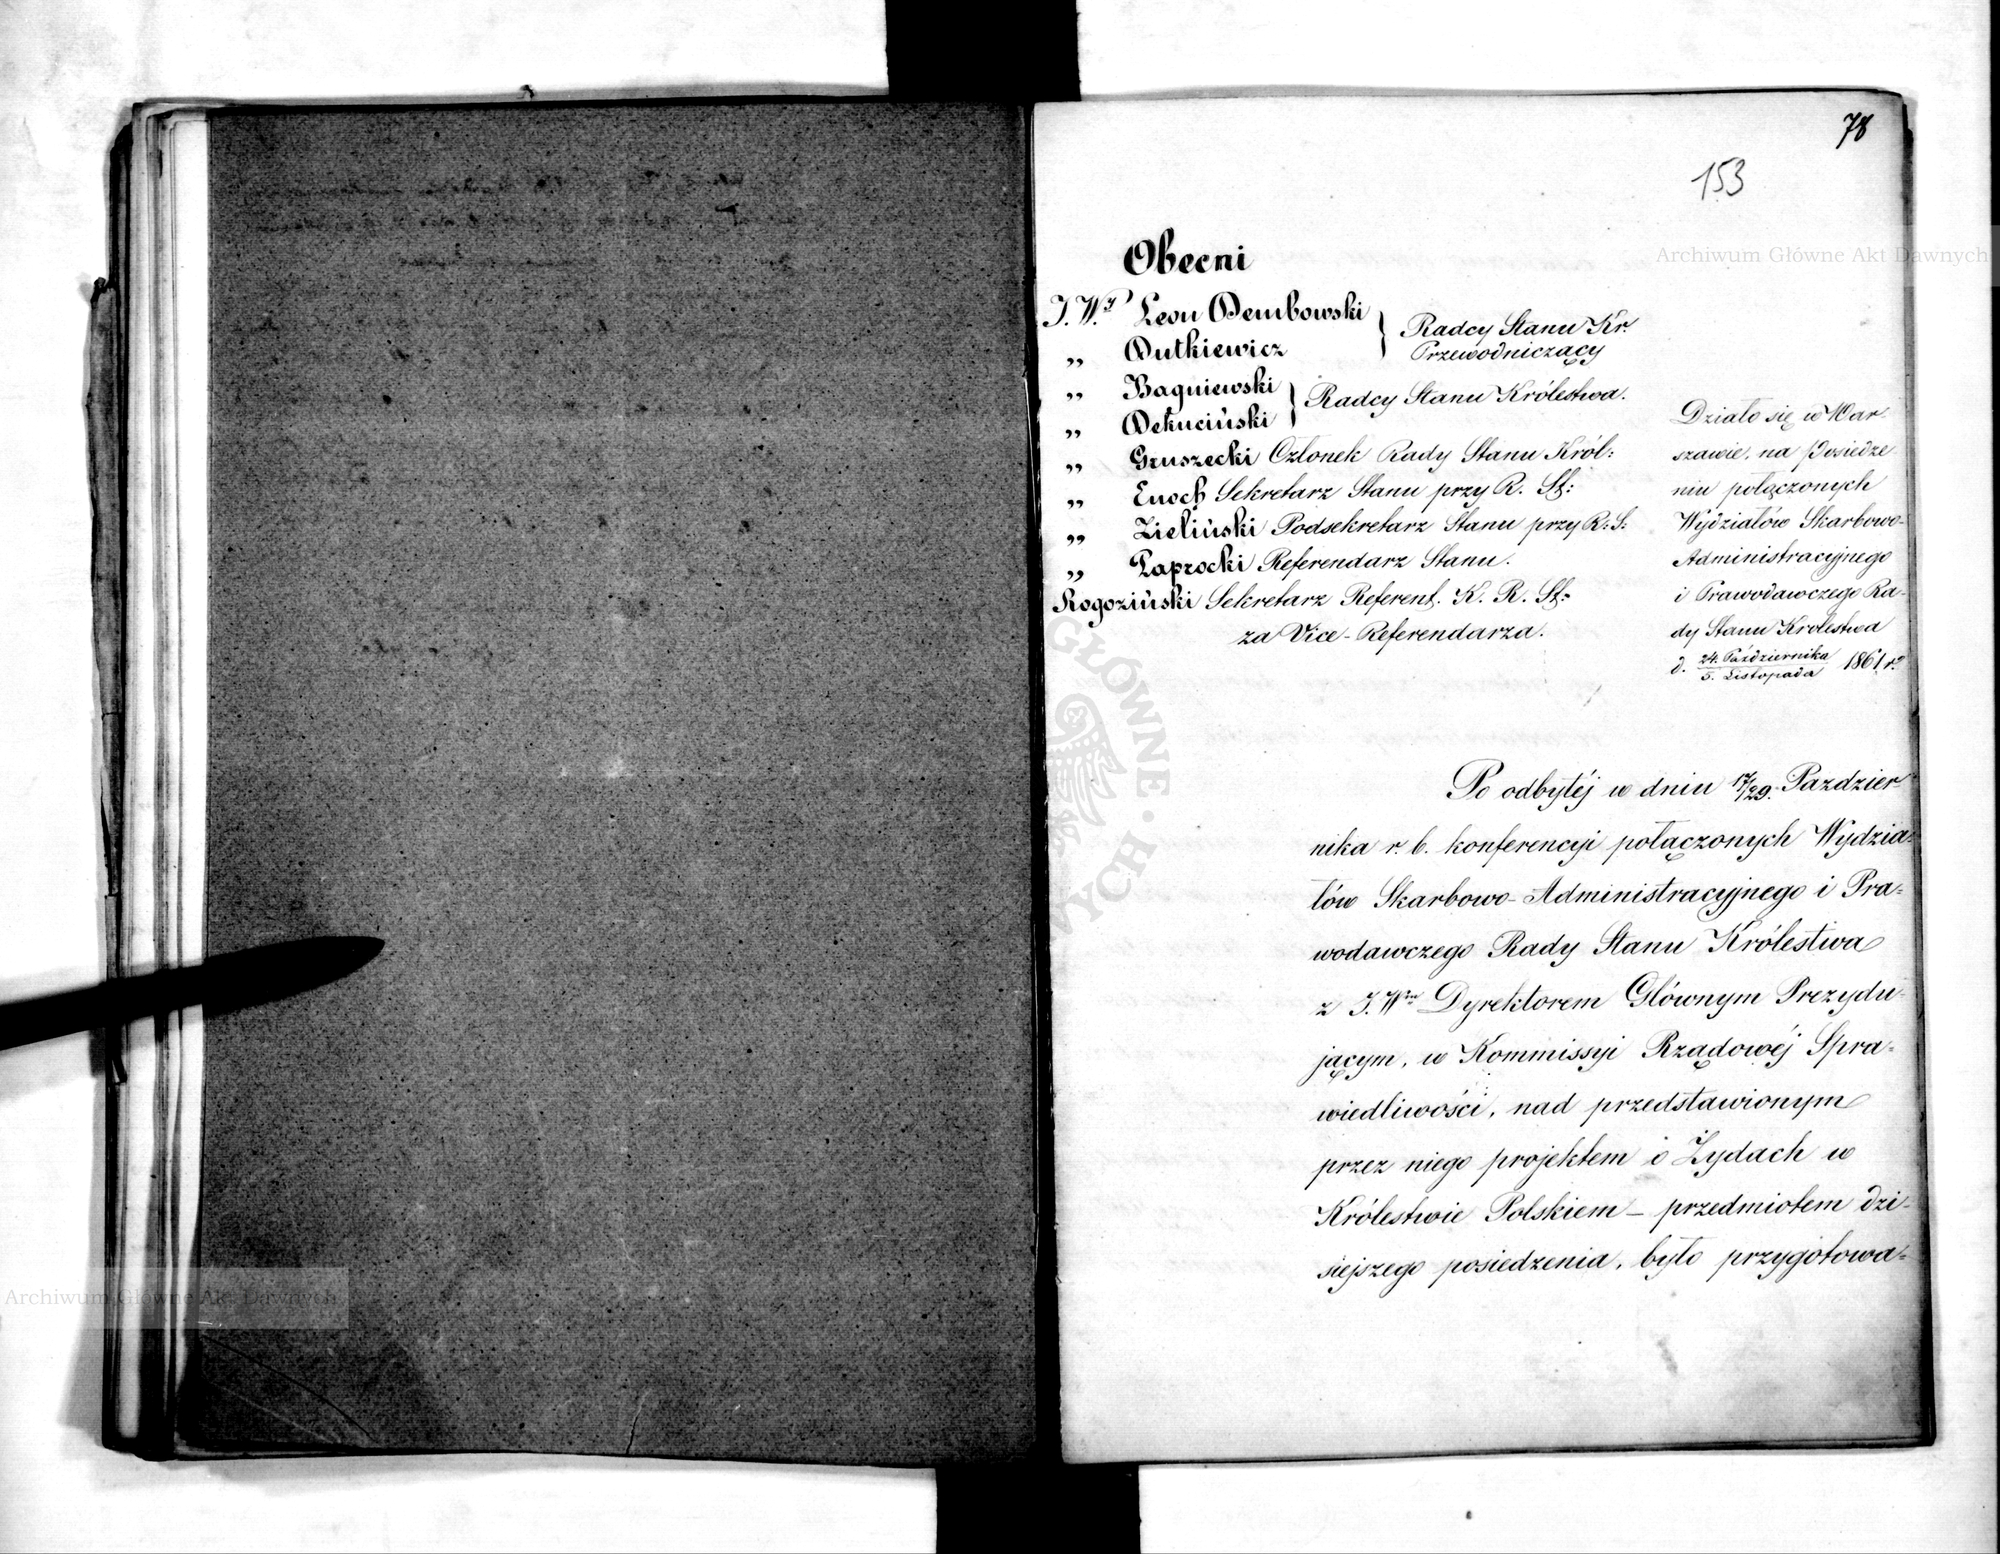 78
153
Obecni
J.Wy Leon Dembowski
„ Dutkiewicz
Radcy Stanu Kr.
Przewodniczący
„ Bagniewski
„ Dekuciński
Radcy Stanu Królestwa.
„ Gruszecki Członek Rady Stanu Król:
„ Enoch Sekretarz Stanu przy R. St:
„ Zieliński Podsekretarz Stanu przy R: S:
„ Paprocki Referendarz Stanu.
Rogoziński Sekretarz Referent. K. R. St:
za Vice-Referendarza.
Działo się w War
szawie, na Posiedze
niu połączonych
Wydziałów Skarbowo-
Administracyjnego
i Prawodawczego Ra-
dy Stanu Królestwa
d. 24. Października / 5. Listopada 1861 r.
Po odbytéj w dniu 17/29. Paździer-
nika r. b. konferencyi połączonych Wydzia-
łów Skarbowo-Administracyjnego i Pra-
wodawczego Rady Stanu Królestwa
z J.Wm Dyrektorem Głównym Prezydu-
jącym, w Kommissyi Rządowéj Spra-
wiedliwości, nad przedstawionym
przez niego projektem o Żydach w
Królestwie Polskiem – przedmiotem dzi-
siejszego posiedzenia, było przygotowa-
Archiwum Główne Akt Dawnych
Archiwum Główne Akt Dawnych